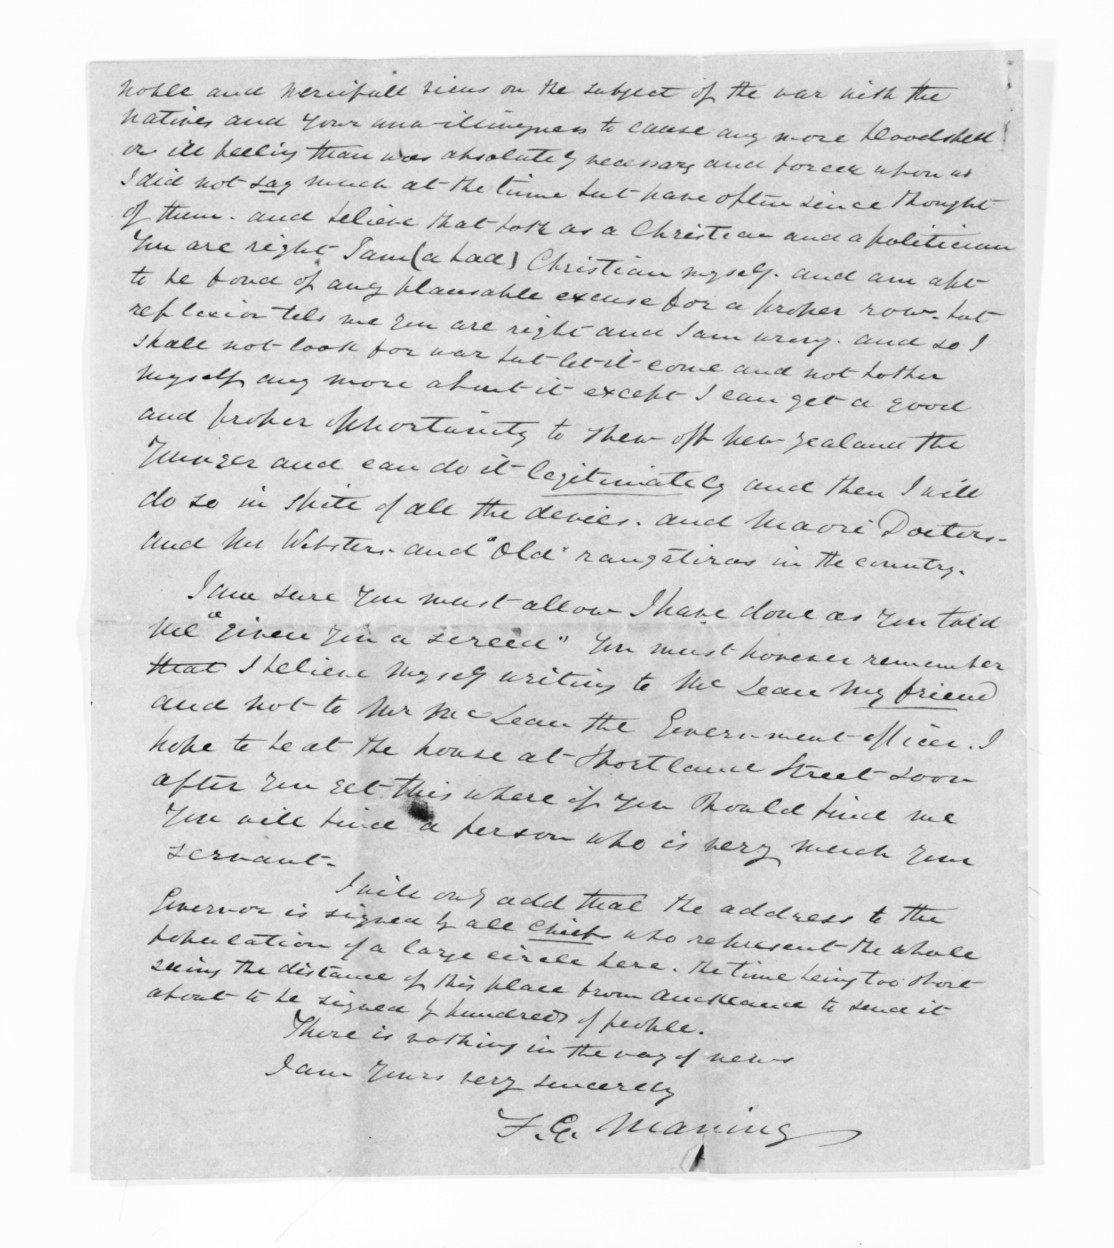 noble and mercifull views on the subject of the war with the
natives and your unwillingness to cause any more bloodshed
or ill feeling than was absolutely necessary and forced upon us
I did not say much at the time but have often since thought
of them. and believe that both as a Christian and a politician
you are right I am (a bad) Christian myself. and am apt
to be fond of any plausable excuse for a proper row. but
reflexion tels me you are right and I am wrong. and so I
shall not look for war but let it come and not bother
myself any more about it except I can get a good
and proper opportunity to shew off new zealand the
Younger and can do it legitimately and then I will
do so in spite of all the devils. and Maori Doctors.
and Mr Websters. and "Old" rangatiras in the country.
I am sure you must allow I have done as you told
me "given you a screed" you must however remember
that I believe myself writing to McLean my friend
and not to Mr McLean the Government officer. I
hope to be at the house at Shortland Street soon
after you get this where if you should find me
you will find a person who is very much your
servant.
I will only add that the address to the
Governor is signed by all chiefs who represent the whole
population of a large circle here. the time being too short
seeing the distance of this place from Auckland to send it
about to be signed by hundreds of people.
There is nothing in the way of news
I am Yours very sincerely
F. E. Maning